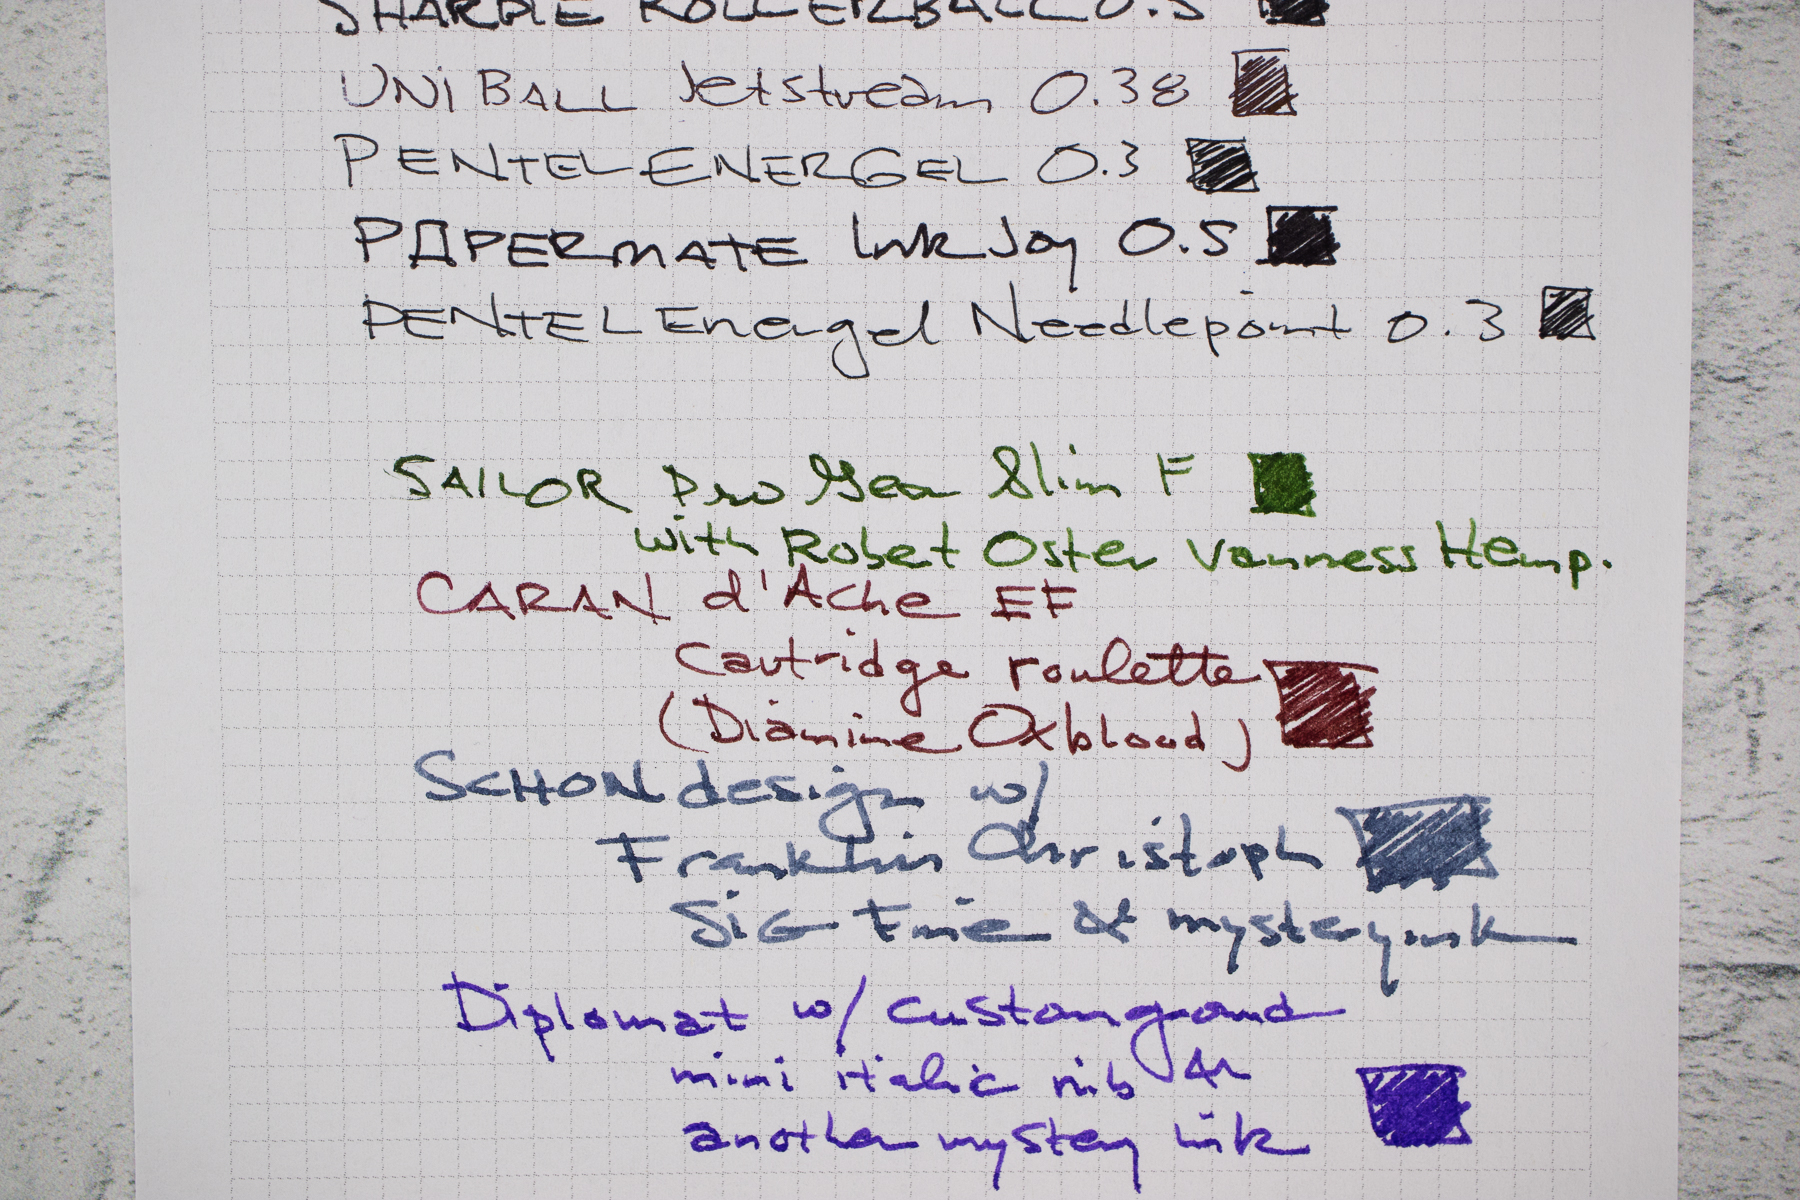 SHARPIE ROLLERBALL 0.5
UNIBALL Jetstream 0.38
PENTEL ENERGEL 0.3
PAPERMATE InkJoy 0.5
PENTEL Energel Needlepoint 0.3
SAILOR Pro Gear Slim F
with Robert Oster Vanness Hemp.
CARAN d'Ache EF
Cartridge roulette
(Diamine Oxblood)
SCHON design w/
Franklin Christoph
SIG Fine & mystery ink
Diplomat w/ custom ground
mini italic nib &
another mystery ink